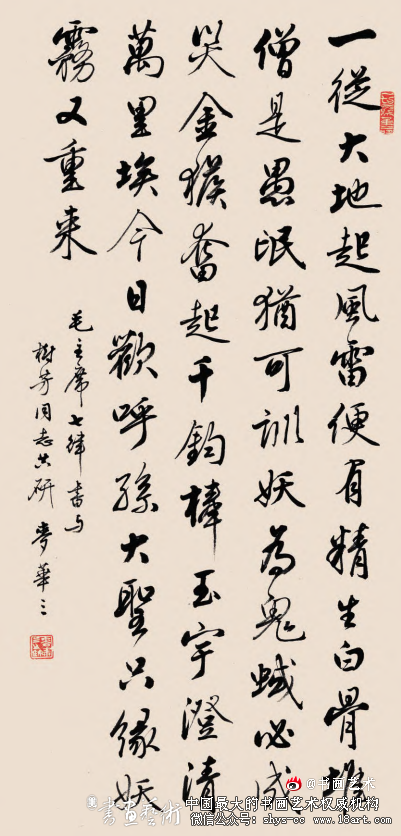 一從大地起風雷便有精生白骨堆
僧是愚氓猶可訓妖為鬼蜮必成
災金猴奮起千鈞棒玉宇澄清
萬里埃今日歡呼孫大聖只緣妖
霧又重来
毛主席七律書与
樹芳同志共研 麥華三
@书画艺术
書畫藝術
中国最大的书画艺术权威机构
微信公众号：shys-oc www.18art.com